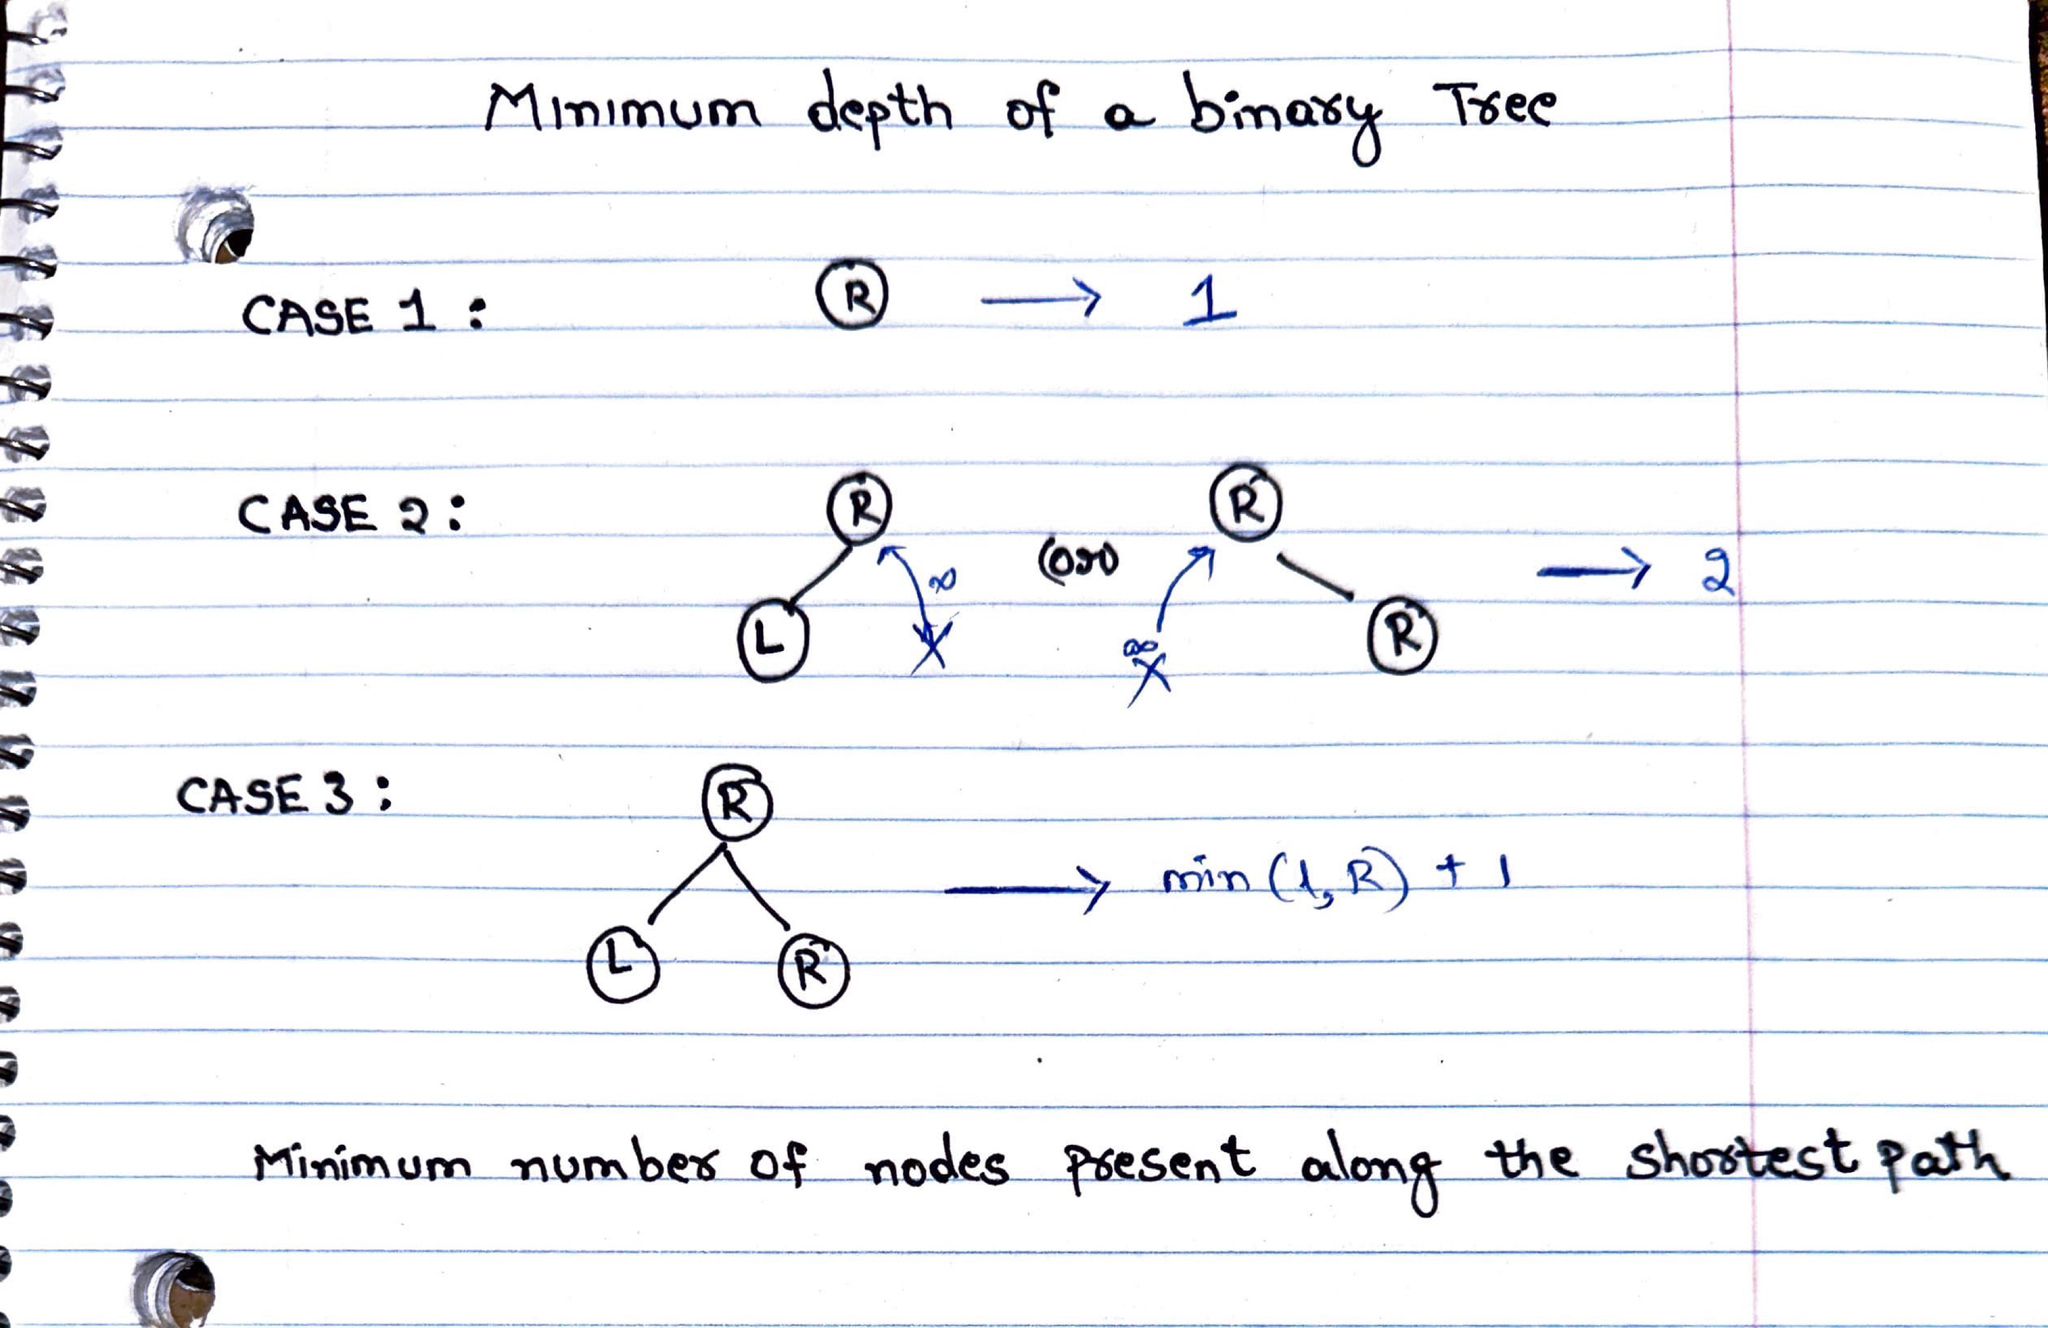 Minimum depth of a binary Tree
CASE 1 : R → 1
CASE 2 : R L ∞ X (or) R R ∞ X → 2
CASE 3 : R L R → min (l, R) + 1
Minimum number of nodes present along the shortest path